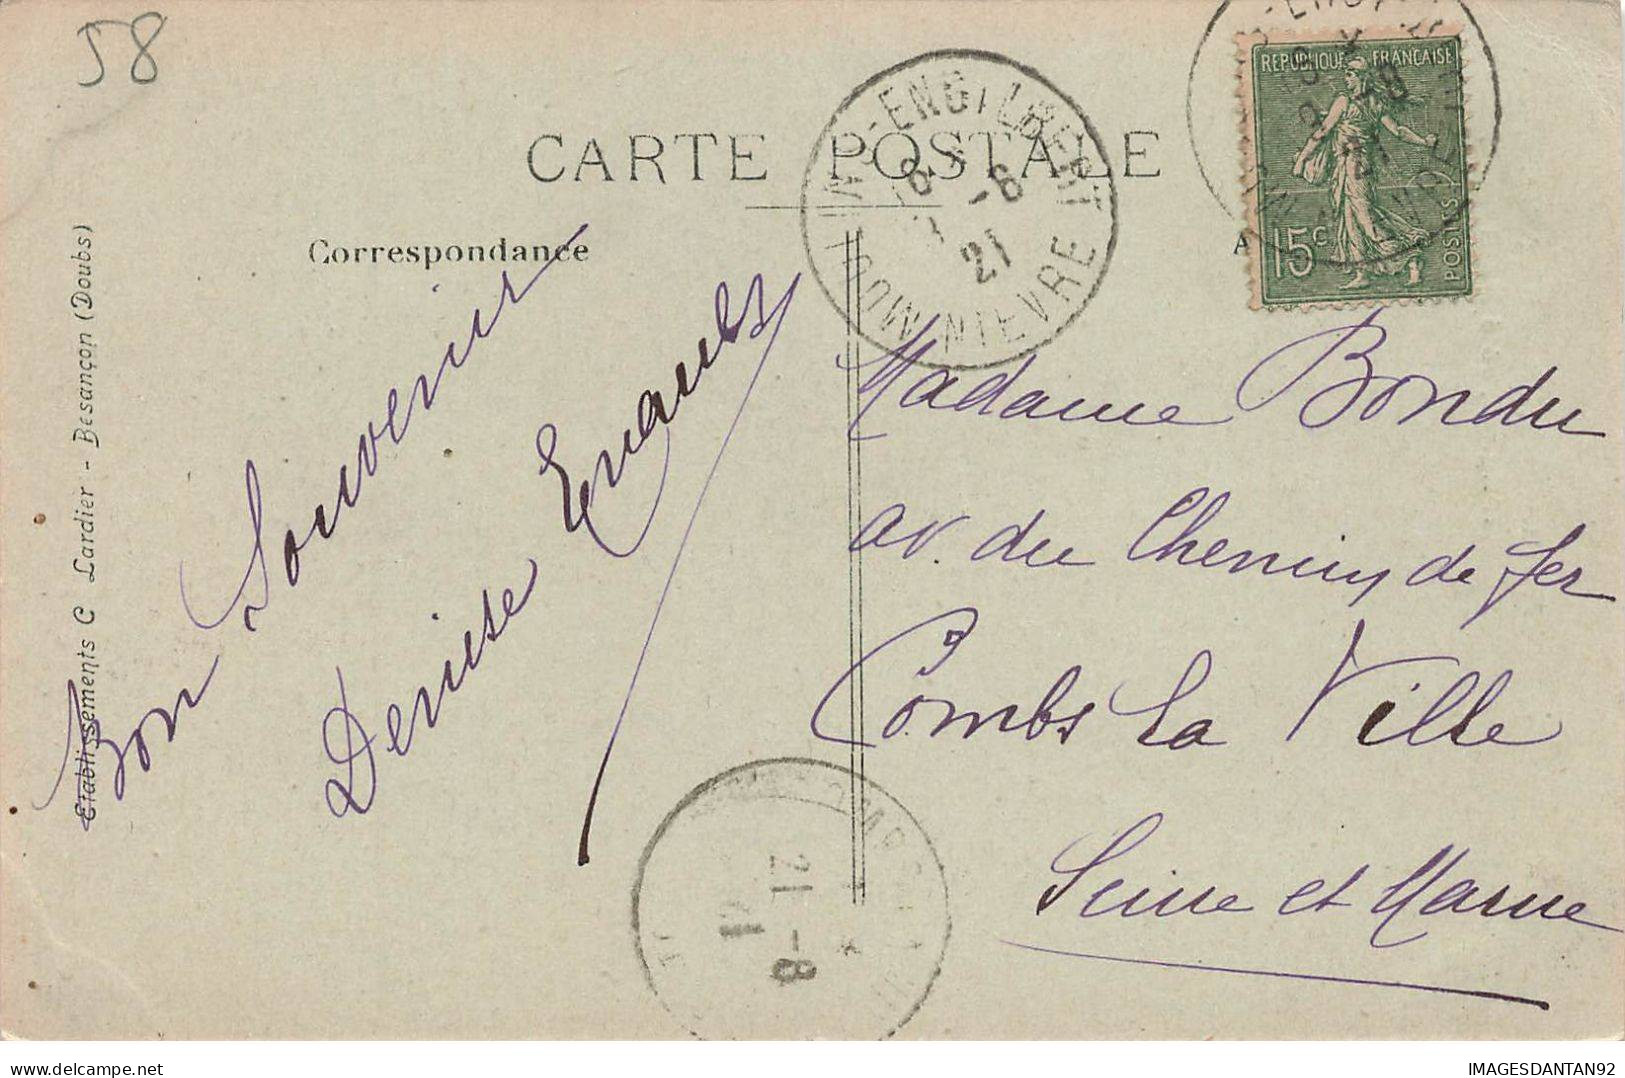 58
CARTE POSTALE
Correspondance
REPUBLIQUE FRANÇAISE
15c
POSTES
ENGILBERT
18
-8
21
NIEVRE
Etablissements C Lardier - Besançon (Doubs)
Bon Souvenir
Denise
Madame Bondu
av. du Chemin de fer
Combs la Ville
Seine et Marne
21
-8
IMAGESDANTAN92